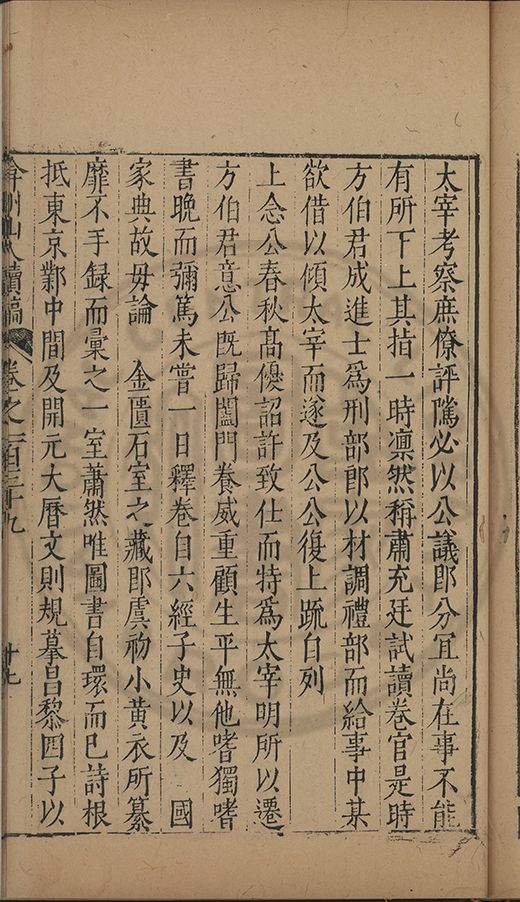 太宰考察庶僚評隲必以公議即分宜尚在事不能
有所下上其指一時凛然稱肅充廷試讀卷官是時
方伯君成進士爲刑部郎以材調禮部而給事中某
欲借以傾太宰而遂及公公復上疏自列
上念公春秋高優詔許致仕而特爲太宰明所以遷
方伯君意公旣歸闔門養威重顧生平無他嗜獨嗜
書晚而彌篤未嘗一日釋卷自六經子史以及　國
家典故毋論　金匱石室之藏即虞初小黃衣所纂
靡不手録而彙之一室蕭然唯圖書自環而已詩根
抵東京鄴中間及開元大曆文則規摹昌黎四子以
弇州山人續稿　卷之一百三十九　十七